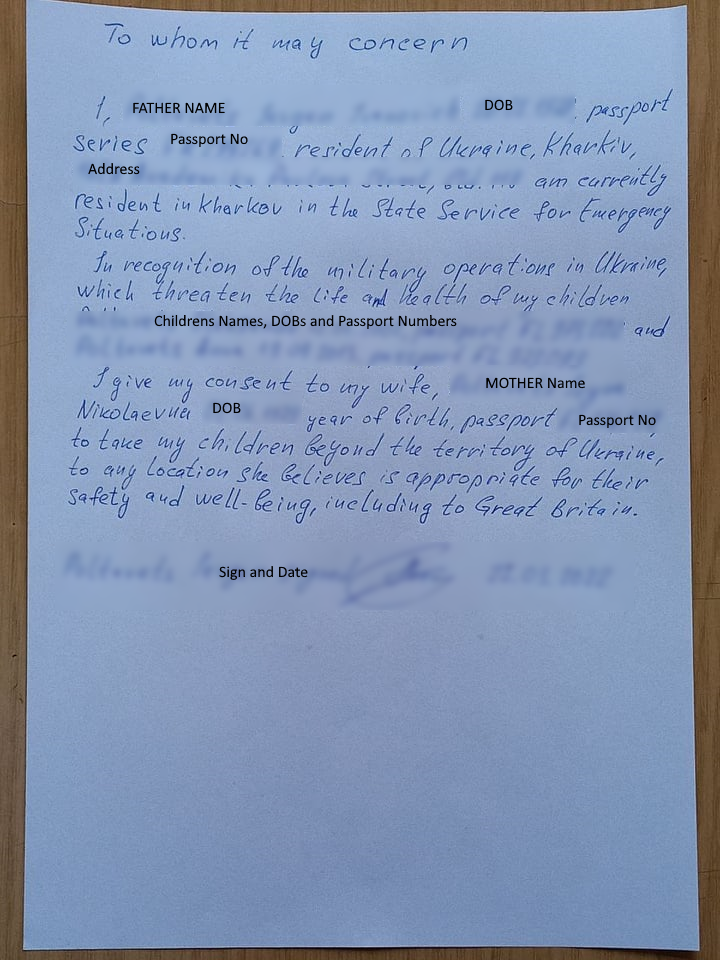 To whom it may concern
I, FATHER NAME DOB passport
series Passport No resident of Ukraine, Kharkiv,
Address am currently
resident in Kharkov in the State Service for Emergency
Situations.
In recognition of the military operations in Ukraine,
which threaten the life and health of my children
Childrens Names, DOBs and Passport Numbers and
I give my consent to my wife, MOTHER Name
Nikolaevna DOB year of birth, passport Passport No
to take my children beyond the territory of Ukraine,
to any location she believes is appropriate for their
safety and well-being, including to Great Britain.
Sign and Date